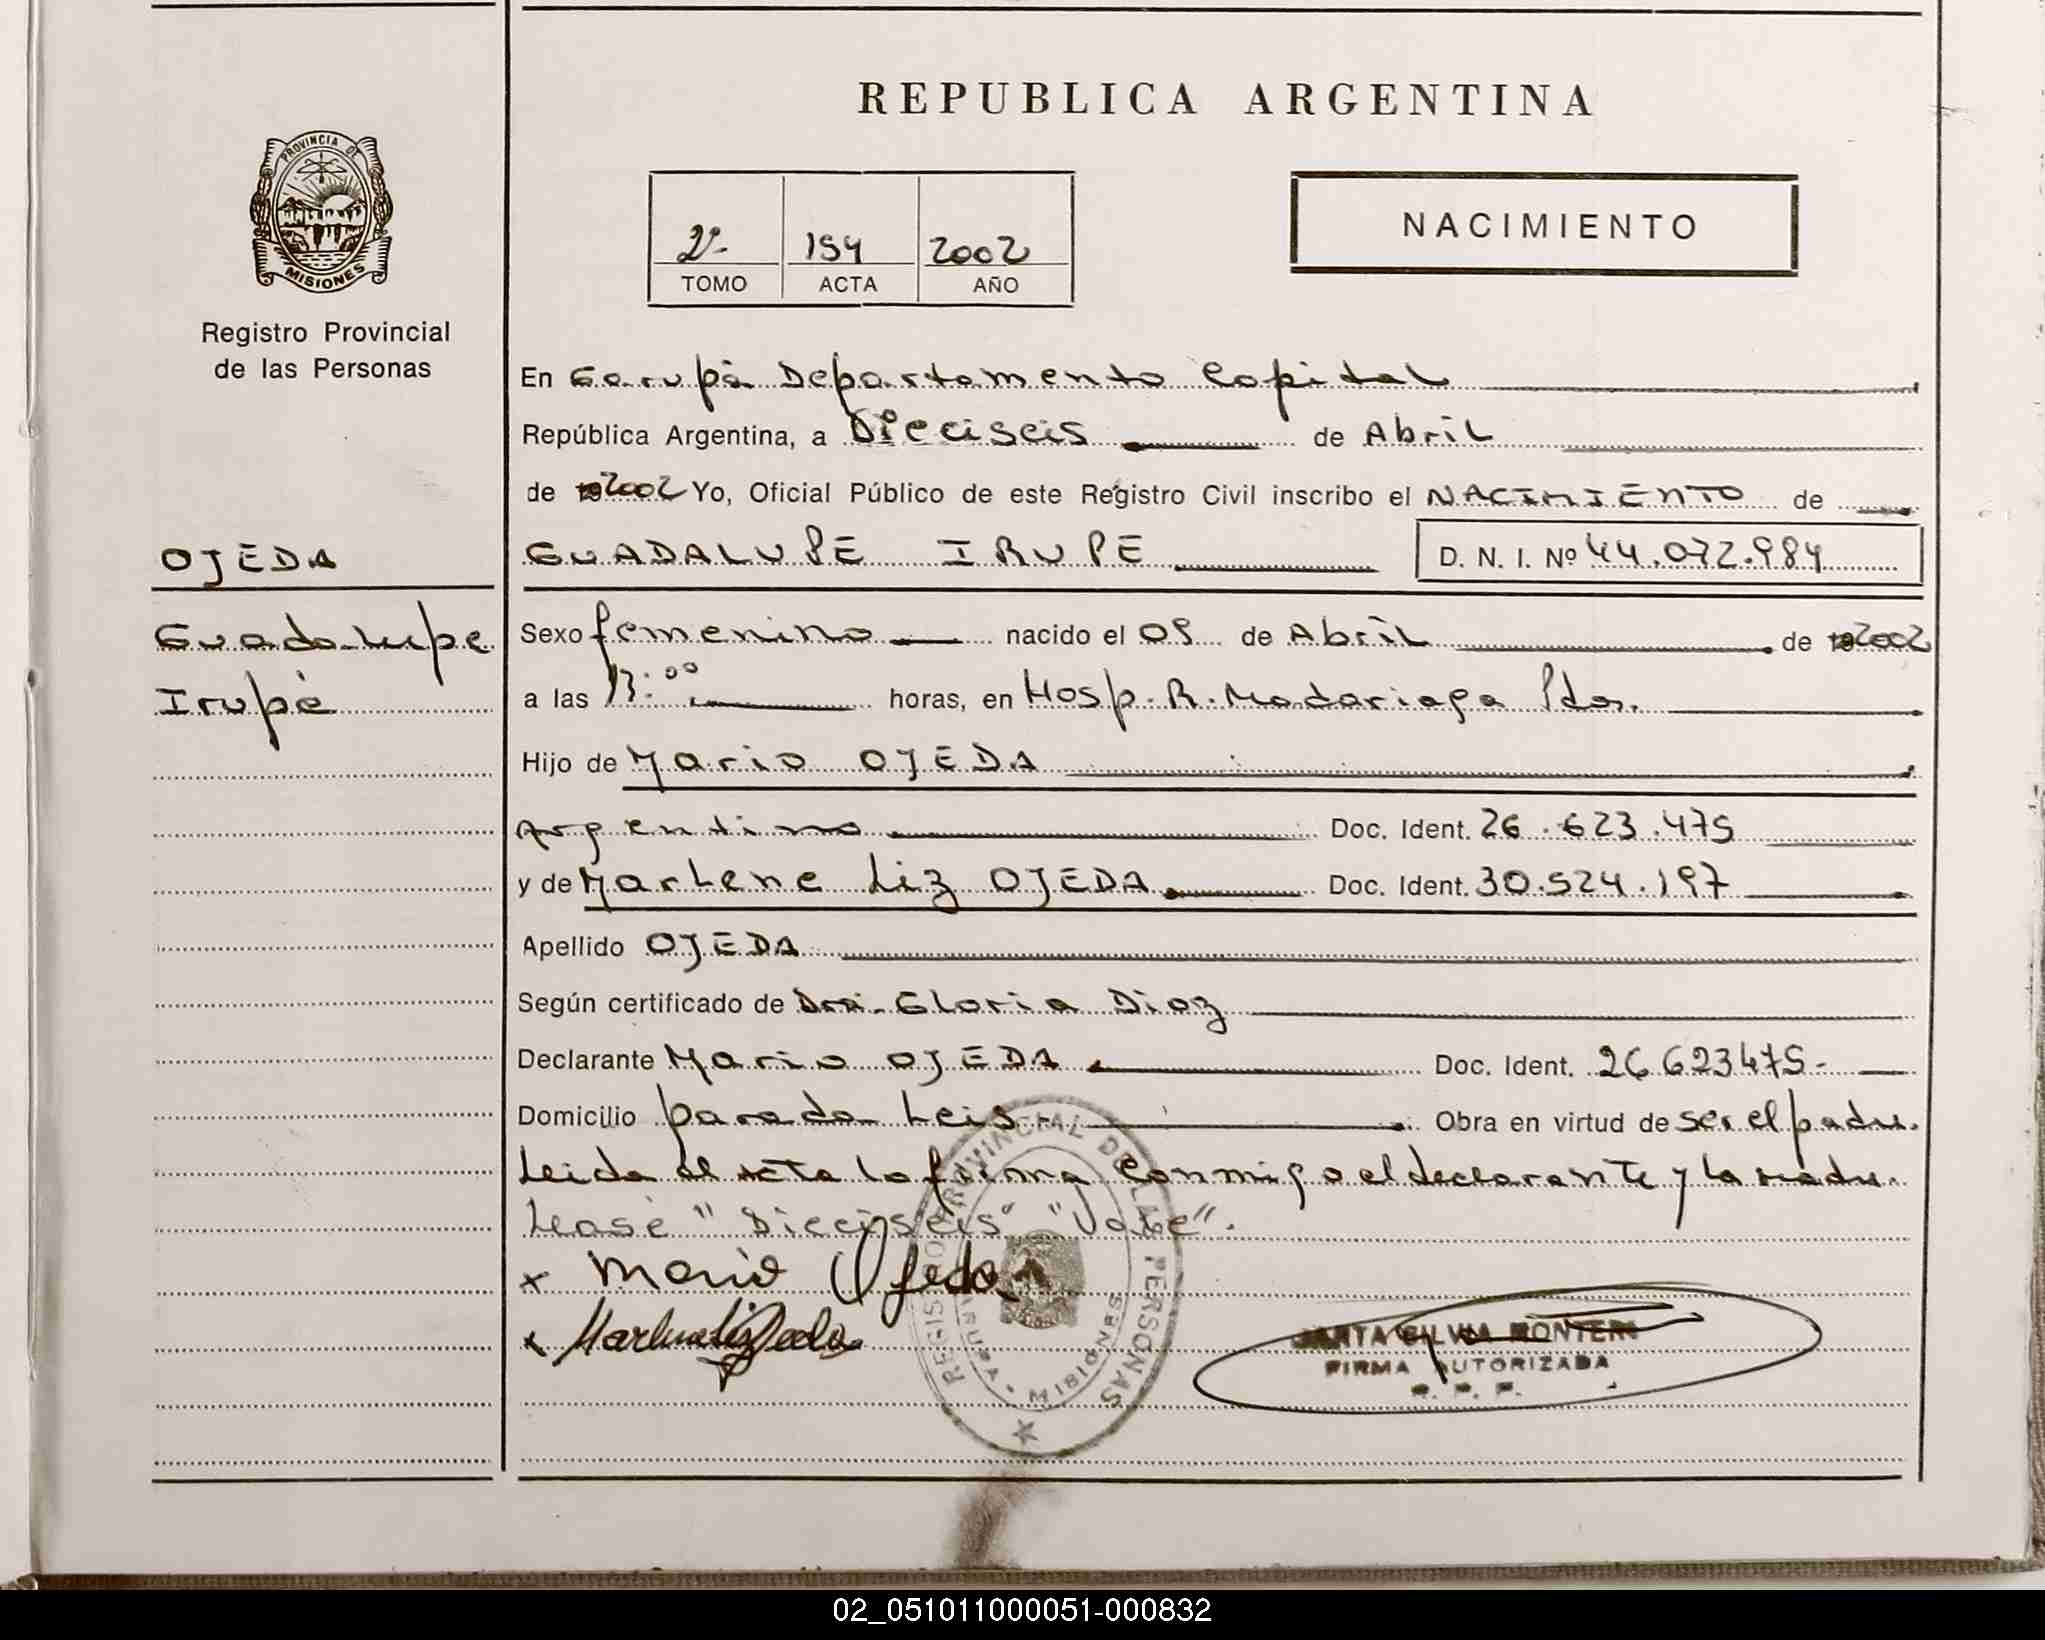 REPUBLICA ARGENTINA
PROVINCIA DE
MISIONES
Registro Provincial
de las Personas
2º- 154 2002
TOMO ACTA AÑO
NACIMIENTO
En Garupá Departamento Capital
República Argentina, a Dieciseis de Abril
de 2002 Yo, Oficial Público de este Registro Civil inscribo el NACIMIENTO de
OJEDA
GUADALUPE IRUPE D. N. I. Nº 44.072.984
Guadalupe
Irupé
Sexo femenino nacido el 09 de Abril de 2002
a las 13:00 horas, en Hosp. R. Madariaga Pdas.
Hijo de Mario OJEDA
Argentino Doc. Ident. 26.623.475
y de Marlene Liz OJEDA Doc. Ident. 30.524.197
Apellido OJEDA
Según certificado de Dra. Gloria Diaz
Declarante Mario OJEDA Doc. Ident. 26623475-
Domicilio parada Leis Obra en virtud de ser el padre.
Leida el acta la firma conmigo el declarante y la madre.
Lease "Dieciseis" "Vale".
x Mario Ojeda
x Marlene Liz Ojeda
REGISTRO PROVINCIAL DE LAS PERSONAS
MISIONES
SILVIA
FIRMA AUTORIZADA
02_051011000051-000832